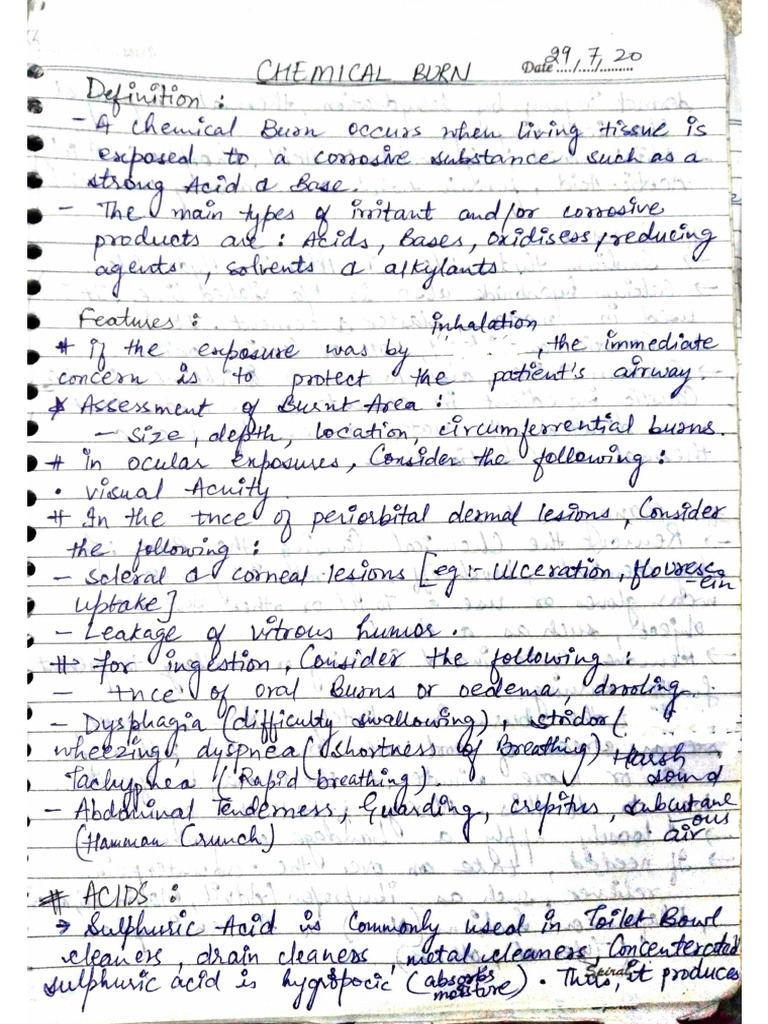 CHEMICAL BURN
Date 29/7/20
Definition :
- A chemical Burn occurs when living tissue is
exposed to a corrosive substance such as a
strong Acid or Base.
- The main types of irritant and/or corrosive
products are : Acids, Bases, oxidisers/reducing
agents , solvents & alkylants
Features : inhalation
# if the exposure was by , the immediate
concern is to protect the patient's airway.
* Assessment of Burnt Area :
- Size, depth, location, circumferrential burns.
# in ocular exposures, Consider the following :
• visual Acuity.
# In the tnce of periorbital dermal lesions, Consider
the following :
- Scleral & corneal lesions [eg :- Ulceration, flouresc
-ein
uptake]
- Leakage of vitrous humor.
# for ingestion, Consider the following :
- tnce of oral Burns or oedema, drooling
- Dysphagia (difficulty swallowing), stridor (
wheezing, dyspnea (shortness of Breathing) Harsh
Tachypnea (Rapid breathing). sound
- Abdominal Tenderness, Guarding, crepitus, subcutane
-ous
(Hamman Crunch) air
# ACIDS :
→ Sulphuric Acid is Commonly used in Toilet Bowl
cleaners, drain cleaners, metal cleaners, Concenterated
sulphuric acid is hygropocic (absorbs moisture). Thus, it produces
Spiral